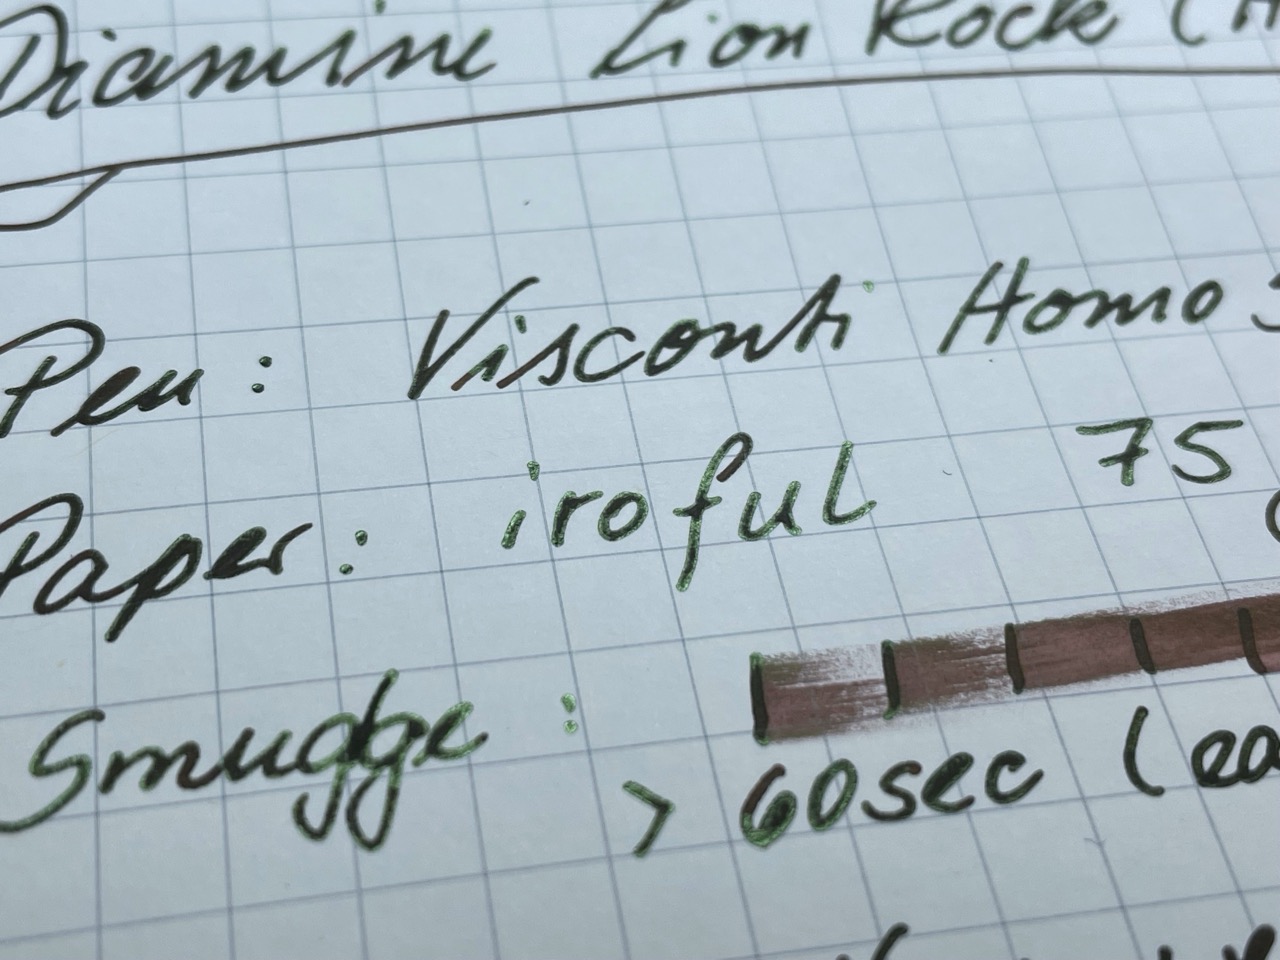 Diamine Lion Rock (
Pen: Visconti Homo
Paper: iroful 75
Smudge:
> 60sec (ea